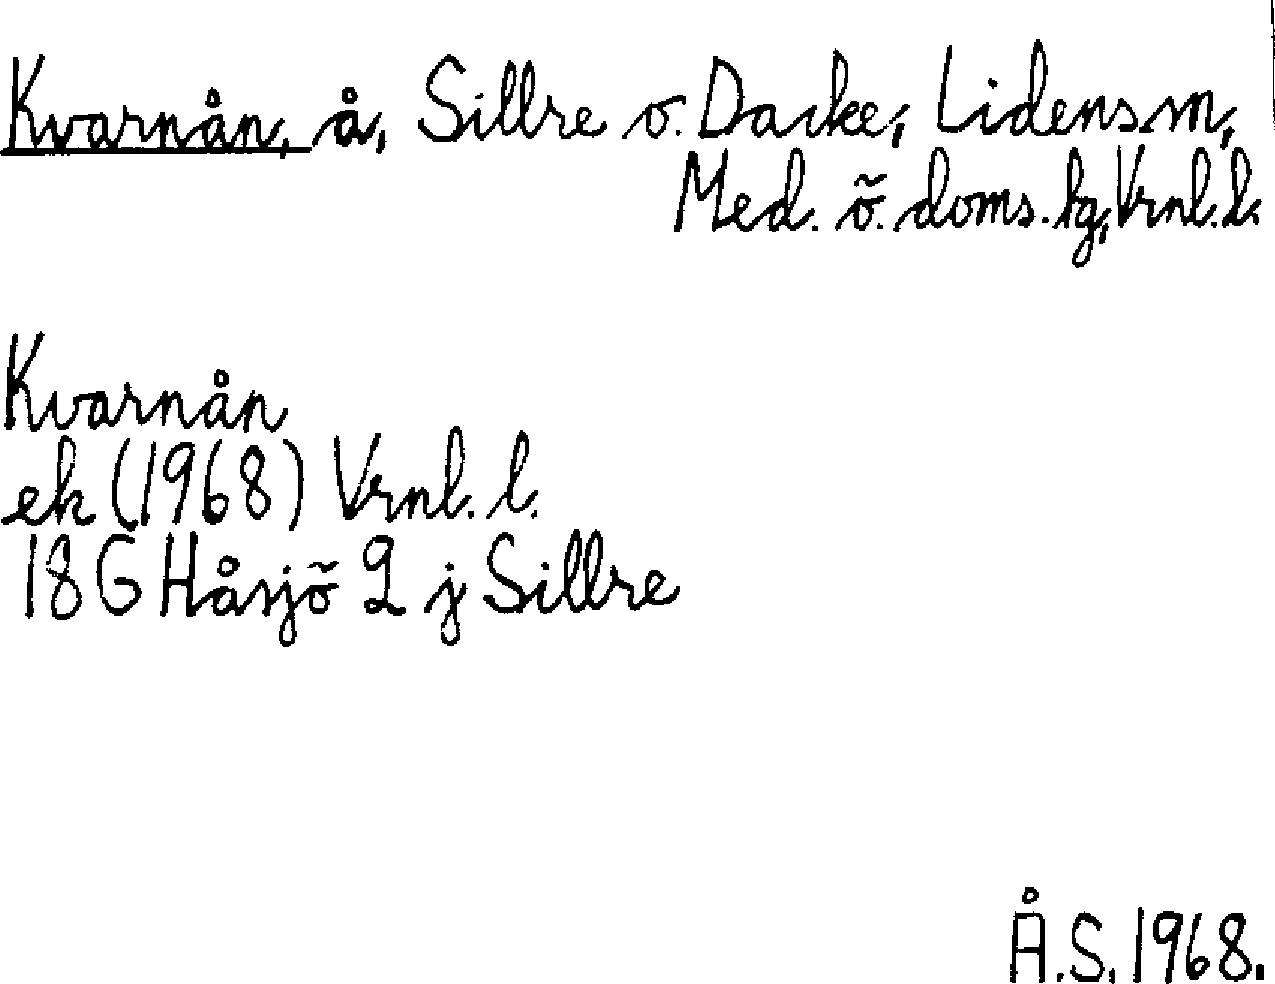 Kvarnån, å, Sillre o. Dacke, Lidens sn,
Med. ö. doms. lg, Vrnl. l.
Kvarnån
ek (1968) Vrnl. l.
18 G Håsjö 2 j Sillre
Å.S. 1968.